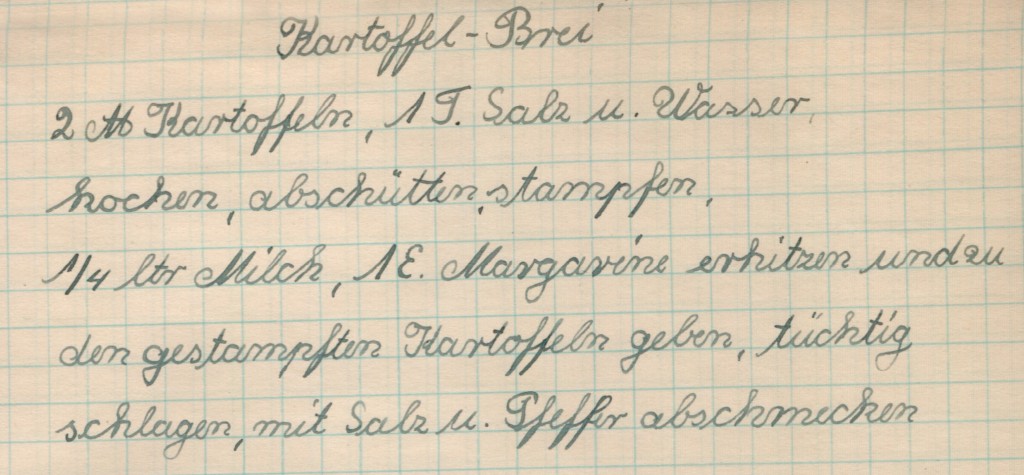 Kartoffel-Brei
2 ℔ Kartoffeln, 1 T. Salz u. Wasser,
kochen, abschütten, stampfen,
1/4 ltr Milch, 1 E. Margarine erhitzen und zu
den gestampften Kartoffeln geben, tüchtig
schlagen, mit Salz u. Pfeffer abschmecken